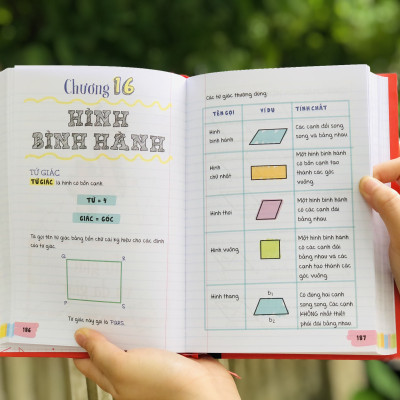 Chương 16
HÌNH
BÌNH HÀNH
TỨ GIÁC
TỨ GIÁC là hình có bốn cạnh.
TỨ = 4
GIÁC = GÓC
Ta gọi tên tứ giác bằng bốn chữ cái ký hiệu cho các đỉnh
của tứ giác.
Q
R
P
S
Tứ giác này gọi là PQRS.
186
Các tứ giác thường dùng:
TÊN GỌI
VÍ DỤ
TÍNH CHẤT
Hình
bình hành
Các cạnh đối song
song và bằng nhau.
Hình
chữ nhật
Một hình bình hành
có bốn cạnh tạo
thành các góc
vuông.
Hình thoi
Một hình bình hành
có các cạnh dài
bằng nhau.
Hình vuông
Một hình bình hành
có các cạnh dài
bằng nhau và các
cạnh tạo thành các
góc vuông.
Hình thang
b₁
b₂
Có đúng hai cạnh
song song. Các cạnh
KHÔNG nhất thiết
phải dài bằng nhau.
187